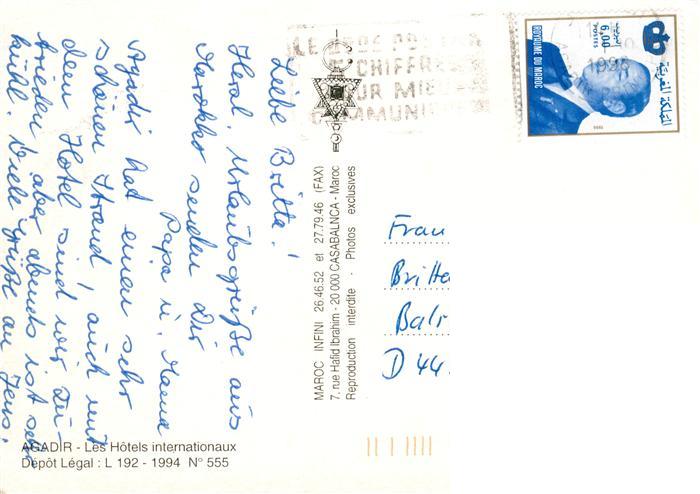 Liebe Britta!
Herzl. Urlaubsgrüße aus
Marokko senden Dir
Papa u. Mama
Agadir hat einen sehr
schönen Strand, auch mit
dem Hotel sind wir zu-
frieden aber abends ist sehr
kühl. Viele Grüße an Jens.
AGADIR - Les Hôtels internationaux
Dépôt Légal : L 192 - 1994 N° 555
MAROC INFINI 26.46.52 et 27.79.46 (FAX)
7, rue Hafid Ibrahim - 20 000 CASABALNCA - Maroc
Reproduction interdite - Photos exclusives
LE CODE POSTAL
CHIFFRES
UR MIE
COMMUNI
البريد
6,00
POSTES
ROYAUME DU MAROC
المملكة المغربية
Frau
Britt
Bal
D 44